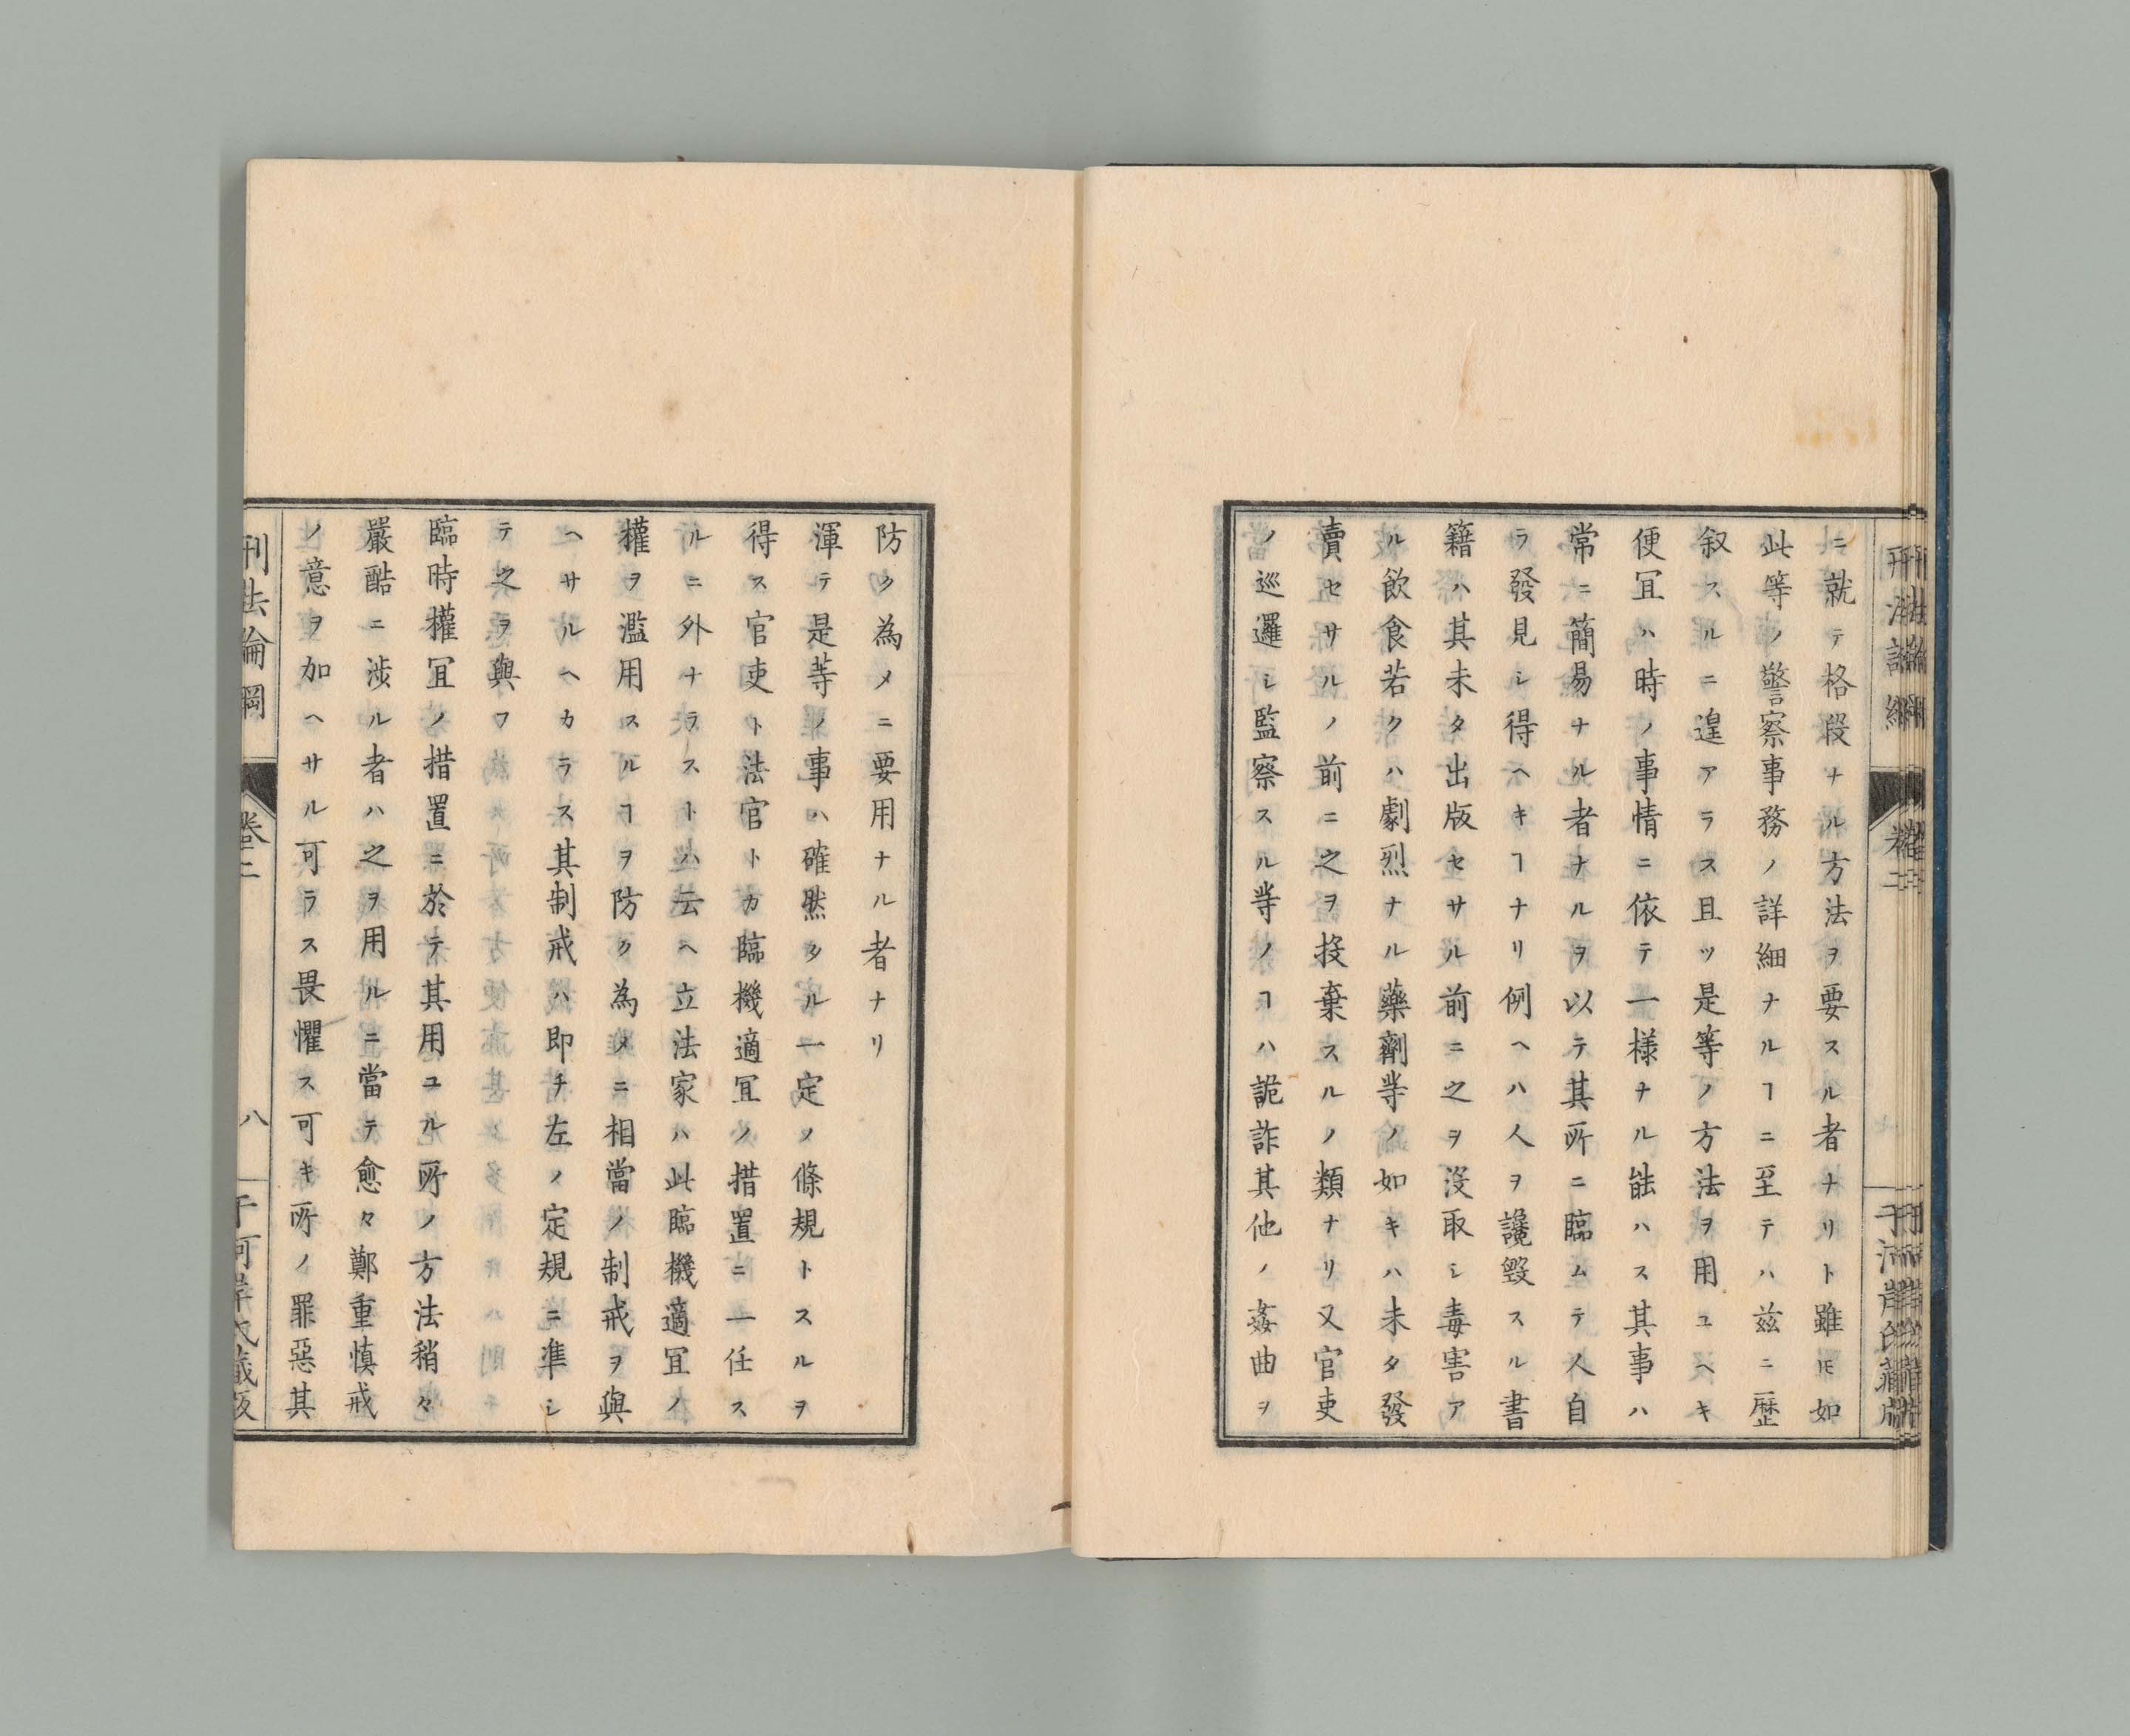 ニ就テ格段ナル方法ヲ要スル者ナリト雖𪜈如
此等ノ警察事務ノ詳細ナルヿニ至テハ茲ニ歴
叙スルニ遑アラス且ツ是等ノ方法ヲ用ユヘキ
便冝ハ時ノ事情ニ依テ一様ナル能ハス其事ハ
常ニ簡易ナル者ナルヲ以テ其所ニ臨ムテ人自
ラ發見シ得ヘキヿナリ例ヘハ人ヲ讒毀スル書
籍ハ其未タ出版セサル前ニ之ヲ沒取シ毒害ア
ル飲食若クハ劇烈ナル藥劑等ノ如キハ未タ發
賣セサルノ前ニ之ヲ投棄スルノ類ナリ又官吏
ノ巡邏シ監察スル等ノヿハ詭詐其他ノ姦曲ヲ
防ク為メニ要用ナル者ナリ
渾テ是等ノ事ハ確然タル一定ノ條規トスルヲ
得ス官吏ト法官トカ臨機適冝ノ措置ニ一任ス
ルニ外ナラスト云ヘハ立法家ハ此臨機適冝ノ
權ヲ濫用スルヿヲ防ク為メニ相當ノ制戒ヲ與
ヘサルヘカラス其制戒ハ即チ左ノ定規ニ準シ
テ之ヲ與フ
臨時權冝ノ措置ニ於テ其用ユル所ノ方法稍々
嚴酷ニ涉ル者ハ之ヲ用ルニ當テ愈々鄭重慎戒
ノ意ヲ加ヘサル可ラス畏懼ス可キ所ノ罪惡其
刑法論綱
卷二
八